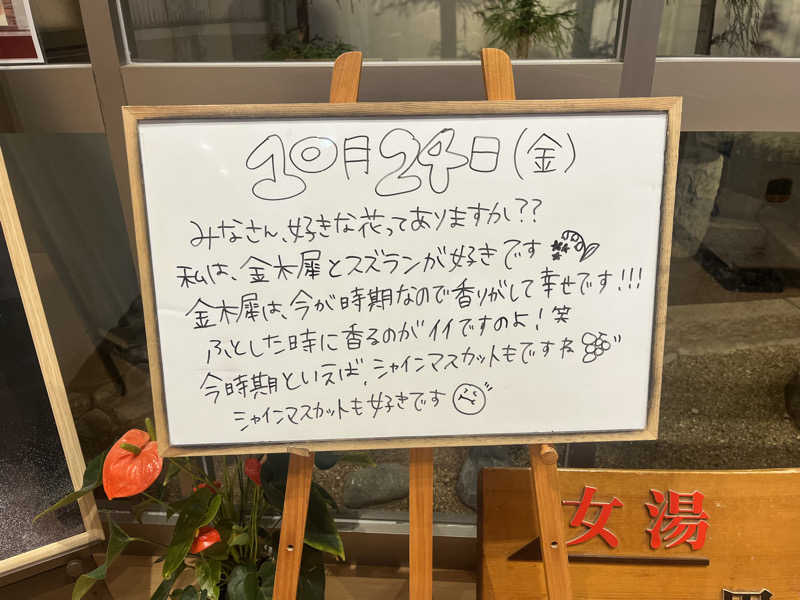 10月24日(金)
みなさん、好きな花ってありますかし??
私は、金木犀とスズランが好きです
金木犀は、今が時期なので香りがして幸せです!!!
ふとした時に香るのがイイですのよ!笑
今時期といえば、シャインマスカットもですね
シャインマスカットも好きです
女湯